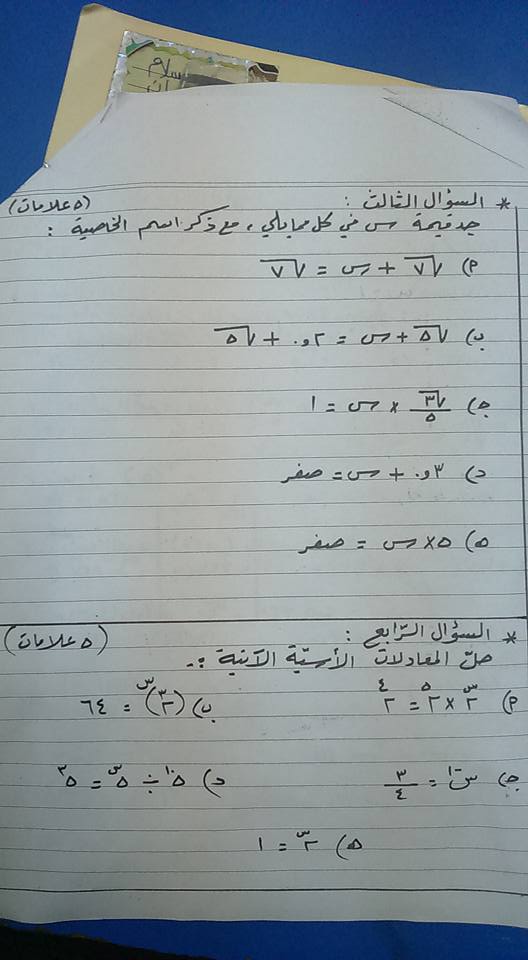 سلام
* السؤال الثالث : (٥ علامات)
جد قيمة س في كل مما يلي ، مع ذكر اسم الخاصية :
أ) √٧ + س = √٧
ب) √٥ + س = ٠,٢ + √٥
ج) √٣/٥ × س = ١
د) ٠,٣ + س = صفر
ه) ٥ × س = صفر
* السؤال الرابع : (٥ علامات)
حل المعادلات الأسية الآتية :-
أ) ٢^س × ٢^٥ = ٢^٤ ب) (٢^٣)^س = ٦٤
ج) س^-١ = ٣/٤ د) ٥^١٠ ÷ ٥^س = ٥^٣
ه) ٢^س = ١